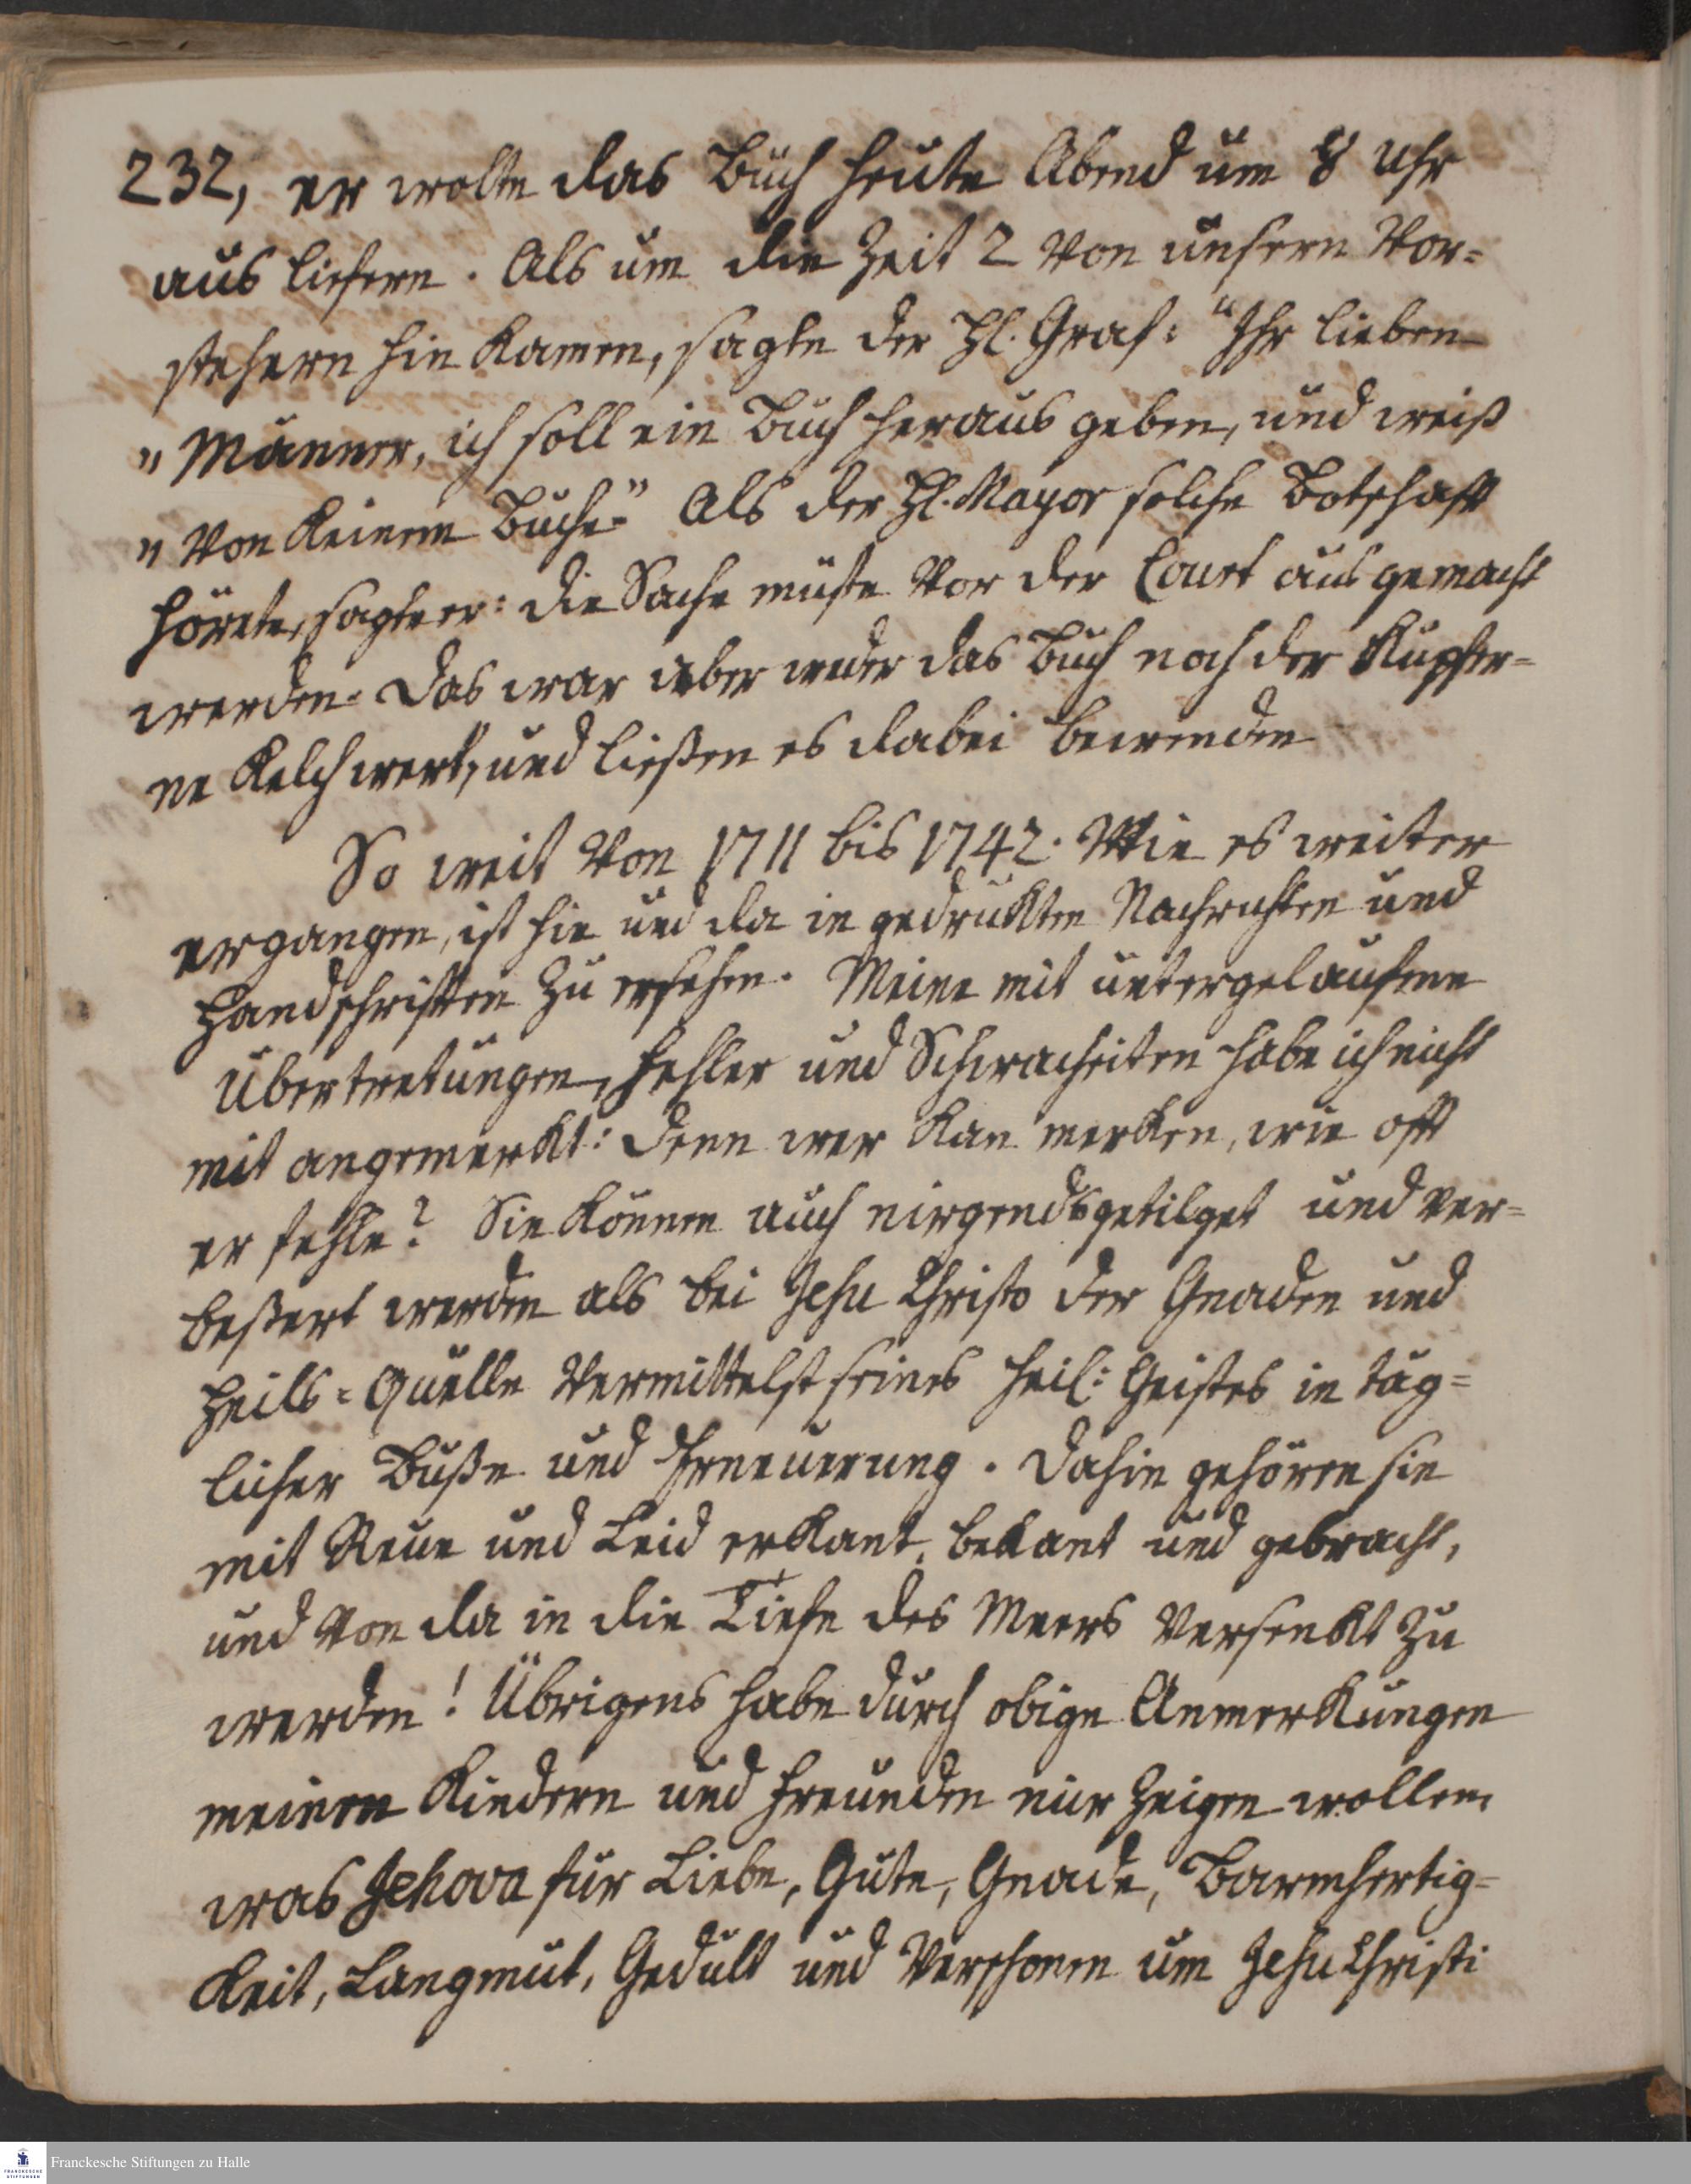 232, er wolte das Buch heute Abend um 8 Uhr
aus liefern. Als um die Zeit 2 von unsern Vor=
stehern hin kamen, sagte der Hl. Graf: "Ihr lieben
" Männer, ich soll ein Buch heraus geben, und weiß
" von keinem Buche." Als der Hl. Mayor solche Botschaft
hörete, sagte er: die Sache müste vor der Court aus gemacht
werden. Das war aber weder das Buch noch der Kupfer=
ne Kelch wert, und ließen es dabei bewenden
So weit von 1711 bis 1742. Wie es weiter
ergangen, ist hie und da in gedrukten Nachrichten und
Handschriften zu ersehen. Meine mit untergelaufene
Übertretungen, Fehler und Schwacheiten habe ich nicht
mit angemerkt: denn wer kan merken, wie oft
er fehle? Sie können auch nirgends getilget und ver=
beßert werden als bei Jesu Christo der Gnaden und
Heils=Quelle vermittelst seines heil: Geistes in täg=
licher Buße und Erneuerung. Dahin gehören sie
mit Reue und Leid erkant, bekant und gebracht,
und von da in die Tiefe des Meers versenkt zu
werden! Übrigens habe durch obige Anmerkungen
meinen Kindern und Freunden nur zeigen wollen,
was Jehova für Liebe, Güte, Gnade, Barmhertig=
keit, Langmut, Gedult und Verschonen um Jesu Christi
Franckesche Stiftungen zu Halle
FRANCKESCHE
STIFTUNGEN